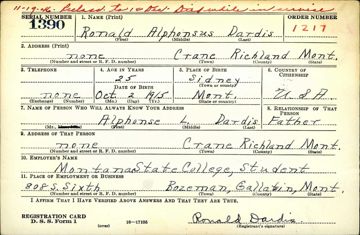 SERIAL NUMBER 1. NAME (Print) ORDER NUMBER
1390 Ronald Alphonsus Dardis 1217
(First) (Middle) (Last)
2. ADDRESS (Print)
none Crane Richland Mont.
(Number and street or R. F. D. number) (Town) (County) (State)
3. TELEPHONE 4. AGE IN YEARS 5. PLACE OF BIRTH 6. COUNTRY OF CITIZENSHIP
none 25 Sidney U S A
DATE OF BIRTH (Town or county)
Oct. 2 1915 Mont.
(Exchange) (Number) (Mo.) (Day) (Yr.) (State or country)
7. NAME OF PERSON WHO WILL ALWAYS KNOW YOUR ADDRESS 8. RELATIONSHIP OF THAT PERSON
Alphonse L. Dardis Father
(First) (Middle) (Last)
9. ADDRESS OF THAT PERSON
none Crane Richland Mont.
(Number and street or R. F. D. number) (Town) (County) (State)
10. EMPLOYER'S NAME
Montana State College, Student
11. PLACE OF EMPLOYMENT OR BUSINESS
808 S. Sixth Bozeman, Gallatin, Mont.
(Number and street or R. F. D. number) (Town) (County) (State)
I AFFIRM THAT I HAVE VERIFIED ABOVE ANSWERS AND THAT THEY ARE TRUE.
REGISTRATION CARD
D. S. S. Form 1 (over) Ronald Dardis